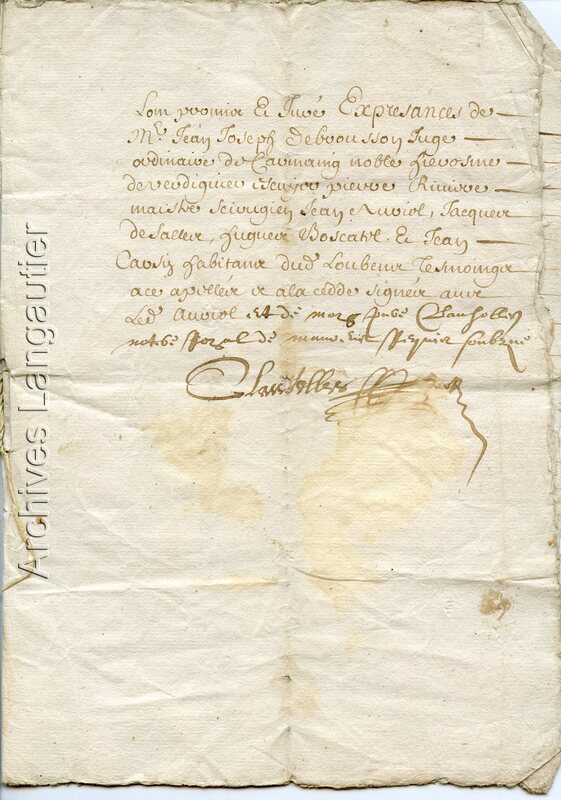 Lom promir Et Juré Expresances de
Mr. Jean Joseph Debrousson Juge
ordinaire de Carmaing noble hierosme
de verdiguier escuyer pierre Riviere
maistre scirugien Jean Auriol, Jacques
de salles, hugues Boscatel Et Jean
habitans dud Loubens Tesmoings
ace apellés & ala cedde signés avec
Led auriol et de moy Clauholles
notere de
Clausolles
Archives Langautier